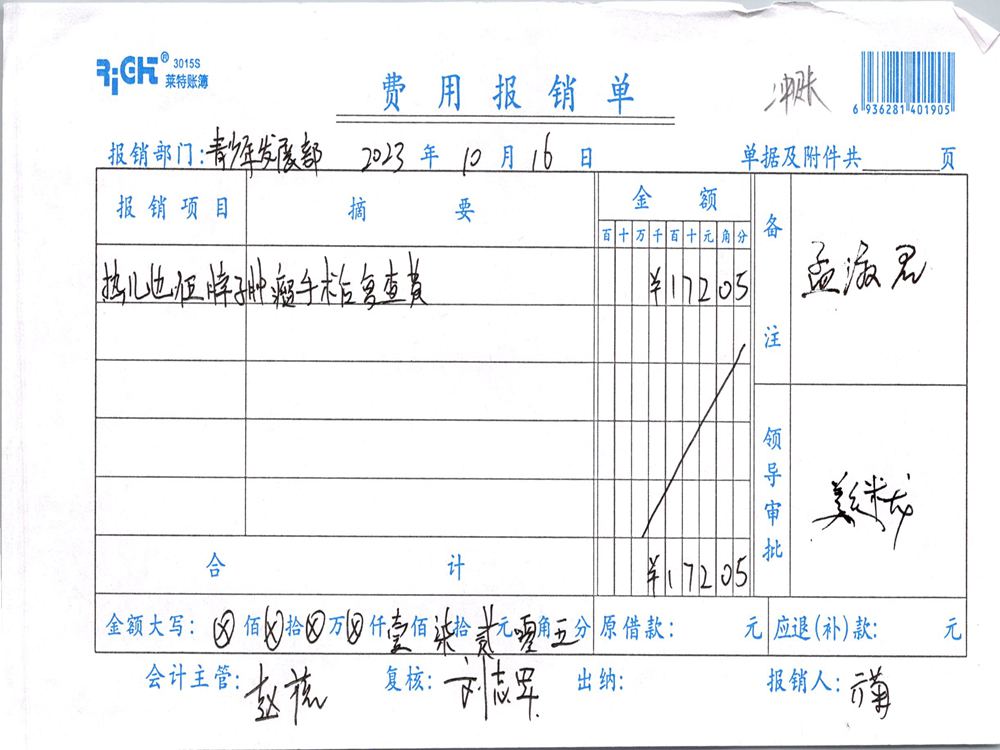 RiGHT® 3015S
莱特账簿
费用报销单
冲账
6 936281 401905
报销部门:青少年发展部 2023 年 10 月 16 日 单据及附件共 页
报销项目 摘要 金额 备注
百十万千百十元角分
手术后复查费 ¥17205
孟淑君
领导审批
合计 ¥17205
金额大写: ⊗佰⊗拾⊗万⊗仟壹佰柒拾贰元零角五分 原借款: 元 应退(补)款: 元
会计主管: 赵 复核: 刘志军 出纳: 报销人: